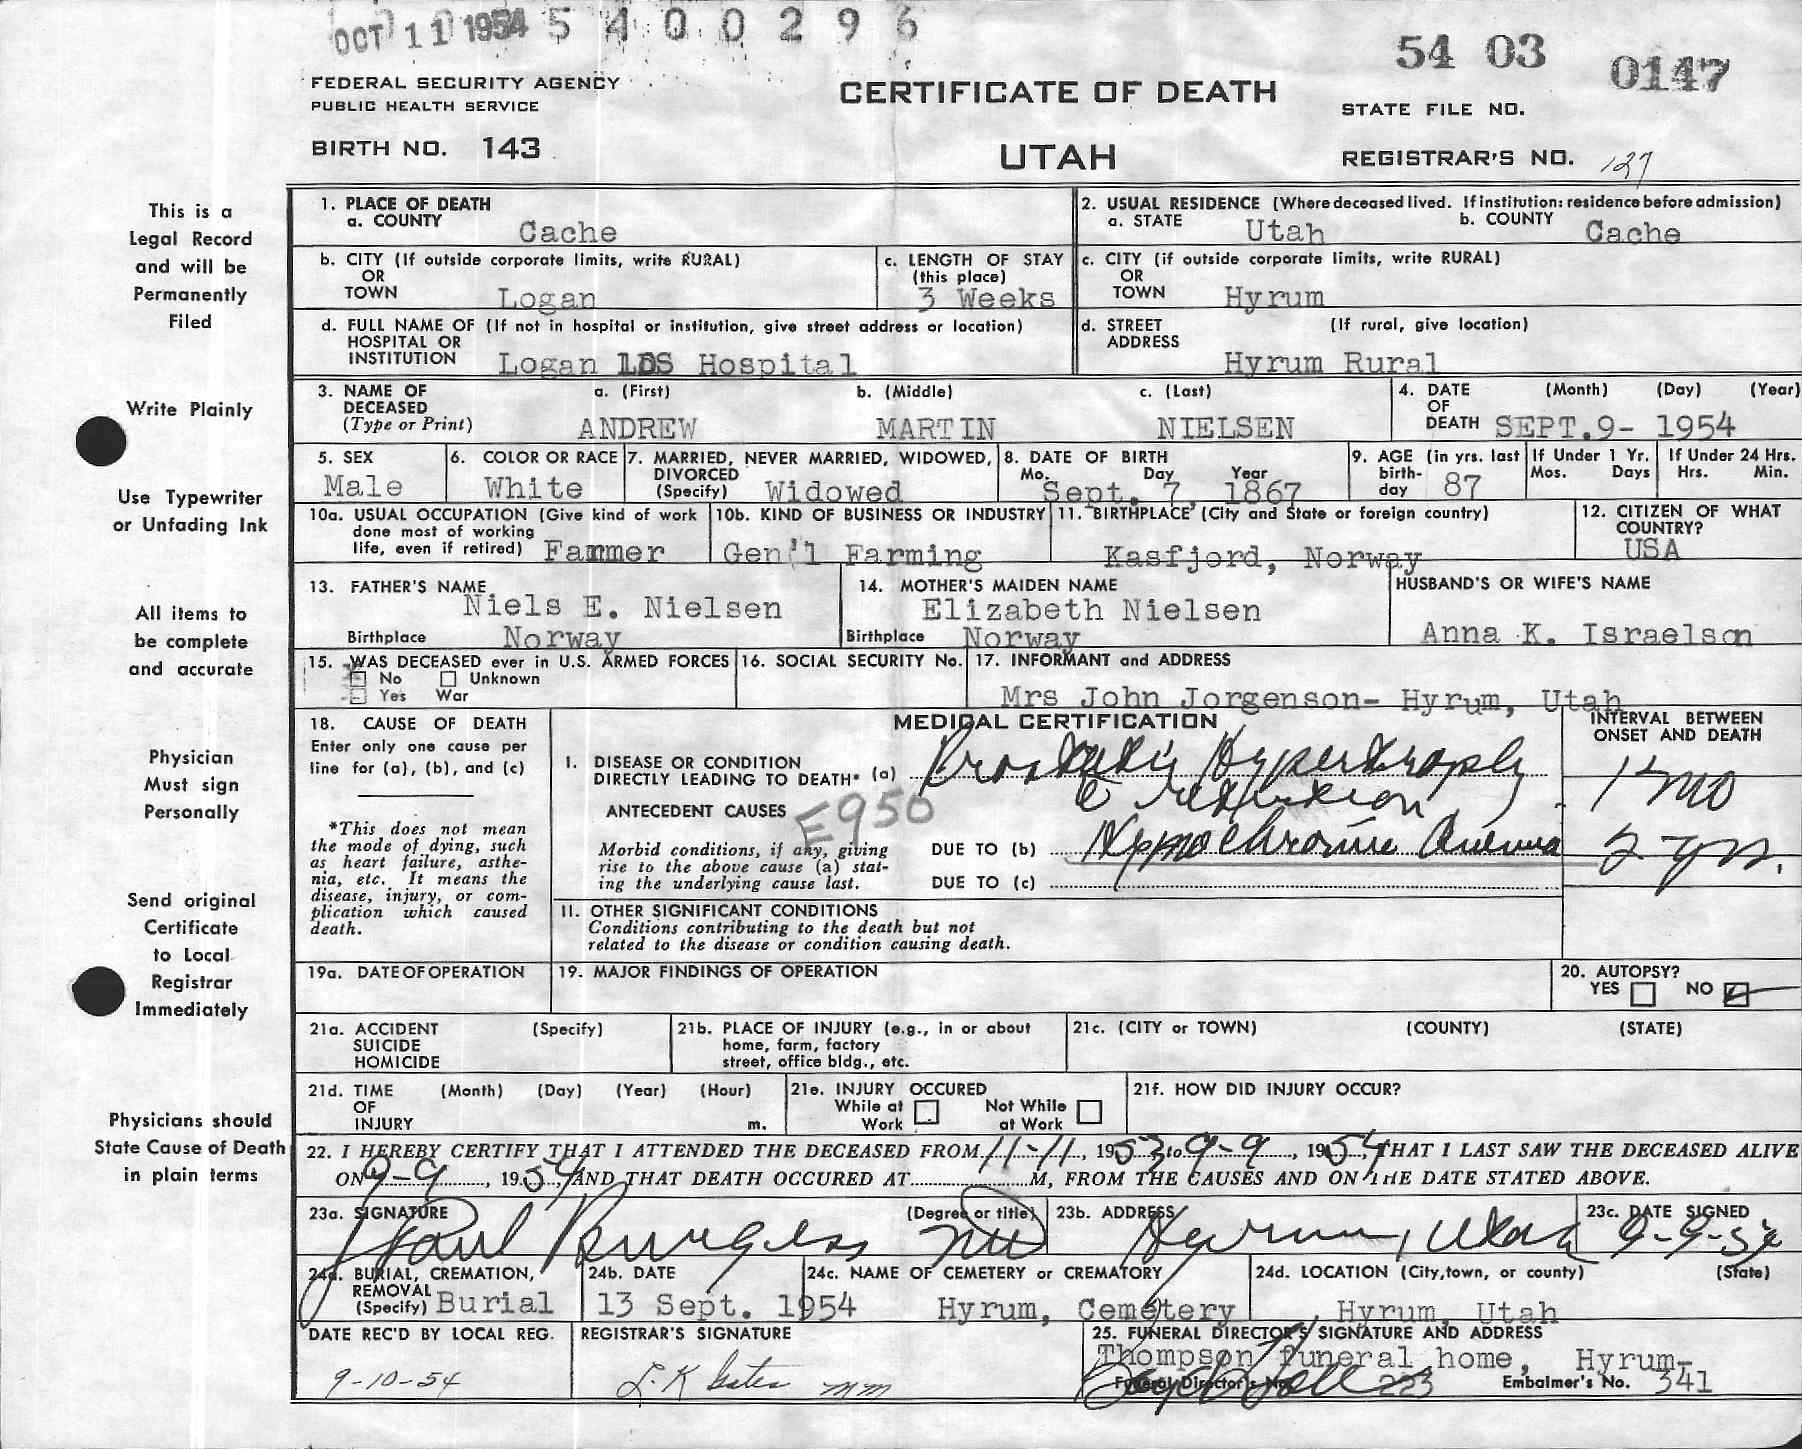 OCT 11 1954 5 4 0 0 2 9 6
54 03 0147
FEDERAL SECURITY AGENCY
PUBLIC HEALTH SERVICE
CERTIFICATE OF DEATH
STATE FILE NO.
BIRTH NO. 143
UTAH
REGISTRAR'S NO. 127
This is a
Legal Record
and will be
Permanently
Filed
Write Plainly
Use Typewriter
or Unfading Ink
All items to
be complete
and accurate
Physician
Must sign
Personally
Send original
Certificate
to Local
Registrar
Immediately
Physicians should
State Cause of Death
in plain terms
1. PLACE OF DEATH
a. COUNTY Cache
2. USUAL RESIDENCE (Where deceased lived. If institution: residence before admission)
a. STATE Utah b. COUNTY Cache
b. CITY (If outside corporate limits, write RURAL)
OR
TOWN Logan
c. LENGTH OF STAY
(this place)
3 Weeks
c. CITY (if outside corporate limits, write RURAL)
OR
TOWN Hyrum
d. FULL NAME OF (If not in hospital or institution, give street address or location)
HOSPITAL OR
INSTITUTION Logan LDS Hospital
d. STREET (If rural, give location)
ADDRESS
Hyrum Rural
3. NAME OF a. (First) b. (Middle) c. (Last)
DECEASED
(Type or Print) ANDREW MARTIN NIELSEN
4. DATE (Month) (Day) (Year)
OF
DEATH SEPT.9- 1954
5. SEX
Male
6. COLOR OR RACE
White
7. MARRIED, NEVER MARRIED, WIDOWED,
DIVORCED
(Specify) Widowed
8. DATE OF BIRTH
Mo. Day Year
Sept. 7 1867
9. AGE (in yrs. last
birth-
day 87
If Under 1 Yr.
Mos. Days
If Under 24 Hrs.
Hrs. Min.
10a. USUAL OCCUPATION (Give kind of work
done most of working
life, even if retired) Farmer
10b. KIND OF BUSINESS OR INDUSTRY
Gen'l Farming
11. BIRTHPLACE (City and State or foreign country)
Kasfjord, Norway
12. CITIZEN OF WHAT
COUNTRY?
USA
13. FATHER'S NAME
Niels E. Nielsen
Birthplace Norway
14. MOTHER'S MAIDEN NAME
Elizabeth Nielsen
Birthplace Norway
HUSBAND'S OR WIFE'S NAME
Anna K. Israelson
15. WAS DECEASED ever in U.S. ARMED FORCES
No Unknown
Yes War
16. SOCIAL SECURITY No.
17. INFORMANT and ADDRESS
Mrs John Jorgenson- Hyrum, Utah
18. CAUSE OF DEATH
Enter only one cause per
line for (a), (b), and (c)
*This does not mean
the mode of dying, such
as heart failure, asthe-
nia, etc. It means the
disease, injury, or com-
plication which caused
death.
MEDICAL CERTIFICATION
INTERVAL BETWEEN
ONSET AND DEATH
I. DISEASE OR CONDITION
DIRECTLY LEADING TO DEATH* (a) Prostatic Hypertrophy
c̄ retention 1 mo
ANTECEDENT CAUSES E950
Morbid conditions, if any, giving
rise to the above cause (a) stat-
ing the underlying cause last.
DUE TO (b) Hypochromic Anemia 2 yrs.
DUE TO (c)
II. OTHER SIGNIFICANT CONDITIONS
Conditions contributing to the death but not
related to the disease or condition causing death.
19a. DATE OF OPERATION
19. MAJOR FINDINGS OF OPERATION
20. AUTOPSY?
YES NO
21a. ACCIDENT (Specify)
SUICIDE
HOMICIDE
21b. PLACE OF INJURY (e.g., in or about
home, farm, factory
street, office bldg., etc.
21c. (CITY or TOWN) (COUNTY) (STATE)
21d. TIME (Month) (Day) (Year) (Hour)
OF
INJURY m.
21e. INJURY OCCURED
While at Not While
Work at Work
21f. HOW DID INJURY OCCUR?
22. I HEREBY CERTIFY THAT I ATTENDED THE DECEASED FROM 11-11, 1953 to 9-9, 1954, THAT I LAST SAW THE DECEASED ALIVE
ON 9-9, 1954, AND THAT DEATH OCCURED AT M, FROM THE CAUSES AND ON THE DATE STATED ABOVE.
23a. SIGNATURE (Degree or title)
Paul Burgess MD
23b. ADDRESS
Hyrum, Utah
23c. DATE SIGNED
9-9-54
24a. BURIAL, CREMATION,
REMOVAL
(Specify) Burial
24b. DATE
13 Sept. 1954
24c. NAME OF CEMETERY or CREMATORY
Hyrum, Cemetery
24d. LOCATION (City, town, or county) (State)
Hyrum, Utah
DATE REC'D BY LOCAL REG.
9-10-54
REGISTRAR'S SIGNATURE
25. FUNERAL DIRECTOR'S SIGNATURE AND ADDRESS
Thompson funeral home, Hyrum-
Funeral Director's No. 223 Embalmer's No. 341